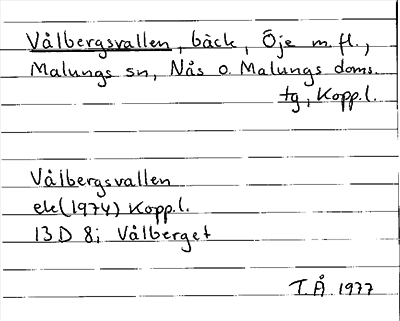 Vålbergsvallen, bäck, Öje m. fl.,
Malungs sn, Nås o. Malungs doms.
tg, Kopp.l.
Vålbergsvallen
ek(1974) Kopp.l.
13D 8i Vålberget
T.Å 1977